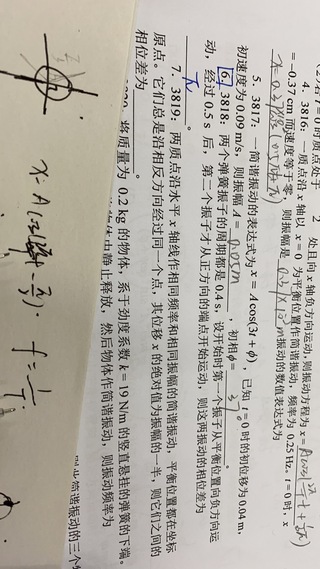 (2)若t=0时质点处于 2 处且向x轴负方向运动,则振动方程为x=
4. 3816:一质点沿x轴以 x=0 为平衡位置作简谐振动,频率为 0.25 Hz,t=0时,x
=−0.37 cm而速度等于零,则振幅是 振动的数值表达式为
5. 3817:一简谐振动的表达式为x=Acos(3t+ϕ),已知 t=0时的初位移为0.04 m,
初速度为0.09 m/s,则振幅A= 0.05m ,初相ϕ=
6. 3818:两个弹簧振子的周期都是0.4 s,设开始时第一个振子从平衡位置向负方向运
动,经过0.5 s后,第二个振子才从正方向的端点开始运动,则这两振动的相位差为
π 。
7. 3819:两质点沿水平x轴线作相同频率和相同振幅的简谐振动,平衡位置都在坐标
原点。它们总是沿相反方向经过同一个点,其位移x的绝对值为振幅的一半,则它们之间的
相位差为
将质量为 0.2 kg 的物体,系于劲度系数 k=19 N/m 的竖直悬挂的弹簧的下端。
中静止释放,然后物体作简谐振动,则振动频率为
简谐振动的三个